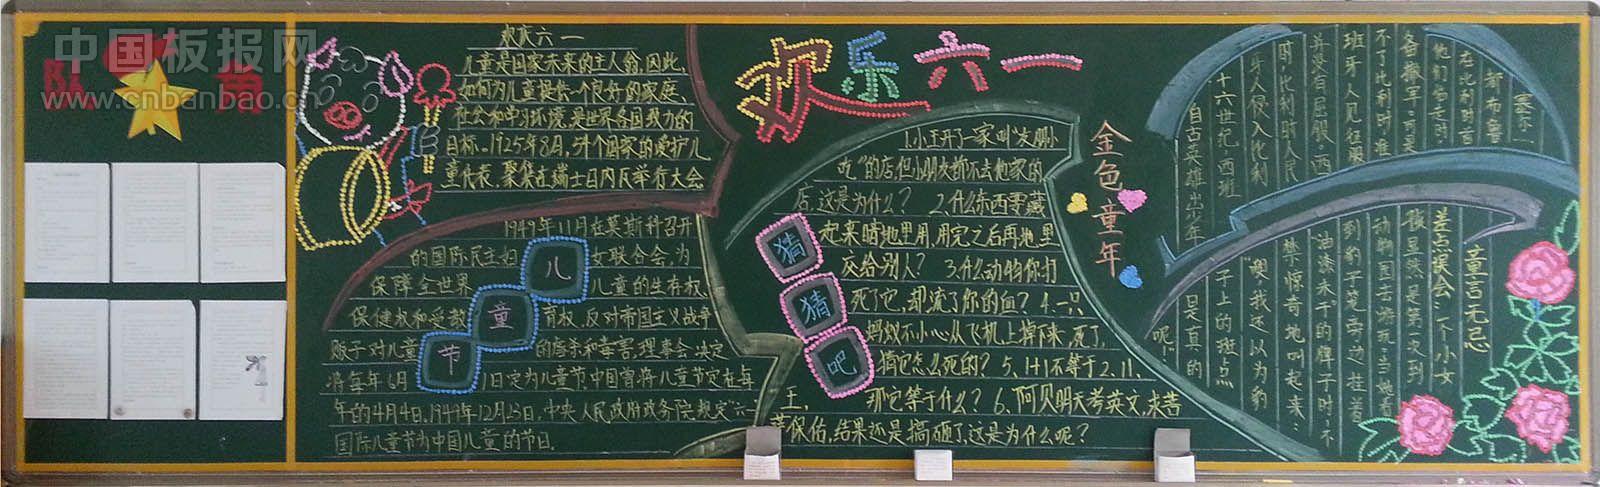 中国板报网
www.cnbanbao.cn
队 角
欢庆六一
儿童是国家未来的主人翁,因此,
如何为儿童提供一个良好的家庭、
社会和学习环境,是世界各国致力的
目标。1925年8月,54个国家的爱护儿
童代表,聚集在瑞士日内瓦举行大会
1949年11月在莫斯科召开
的国际民主妇女联合会,为
保障全世界儿童的生存权
保健权和受教育权,反对帝国主义战争
贩子对儿童的虐杀和毒害,理事会决定
将每年6月1日定为儿童节,中国曾将儿童节定在每
年的4月4日,1949年12月23日,中央人民政府政务院规定“六一
国际儿童节为中国儿童的节日。
儿
童
节
欢乐六一
1.小王开了一家叫“友朋小
吃”的店但小朋友都不去他家的
店,这是为什么? 2、什么东西要藏
起来暗地里用,用完之后再地里
交给别人? 3.什么动物你打
死了它,却流了你的血? 4.一只
蚂蚁不小心从飞机上掉下来,死了,
请问它怎么死的? 5、1+1不等于2、11、
王、 那它等于什么? 6、阿贝明天考英文,求菩
萨保佑,结果还是搞砸了,这是为什么呢?
猜
猜
吧
金色童年
自古英雄出少年
十六世纪,西班
牙人侵入比利
时,比利时人民
并没有屈服。西
班牙人见征服
不了比利时,准
备撤军。可是
他们临走时,
在比利时首
都布鲁
塞尔
童言无忌
差点误会:一个小女
孩显然是第一次到
动物园去游玩,当她看
到豹子笼旁边挂着
“油漆未干”的牌子时,不
禁惊奇地叫起来:
“噢,我还以为豹
子上的斑点
是真的
呢!”